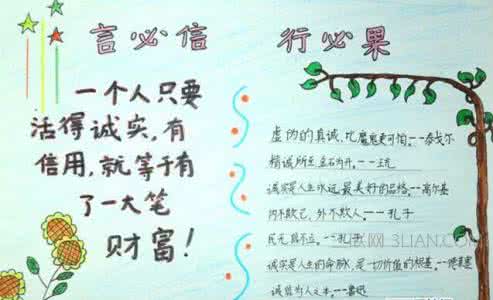 言必信 行必果
一个人只要
活得诚实,有
信用,就等于有
了一大笔
财富!
虚伪的真诚,比魔鬼更可怕。--泰戈尔
精诚所至,金石为开。--王充
诚实是人生永远最美好的品格。--高尔基
内不欺己,外不欺人。--孔子
民无信不立。--孔子
诚实是人生的命脉,是一切价值的根基。--德莱塞
诚信为人之本。--鲁迅
3LIAN.COM